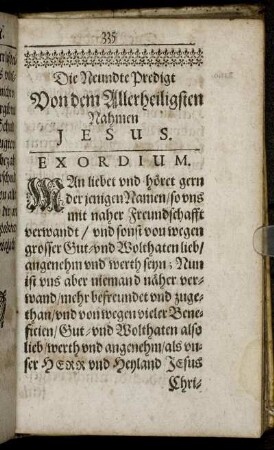 335
Die Neundte Predigt
Von dem Allerheiligsten
Nahmen
JESUS.
EXORDIUM.
MAn liebet vnd höret gern
der jenigen Namen/ so vns
mit naher Freundschafft
verwandt / vnd sonst von wegen
grosser Gut/ vnd Wolthaten lieb/
angenehm vnd werth seyn; Nun
ist vns aber niemand näher ver-
wand/ mehr befreundet vnd zuge-
than/ vnd von wegen vieler Bene-
ficien/ Gut/ vnd Wolthaten also
lieb/ werth vnd angenehm/ als vn-
ser HERR vnd Heyland JEsus
Chri-